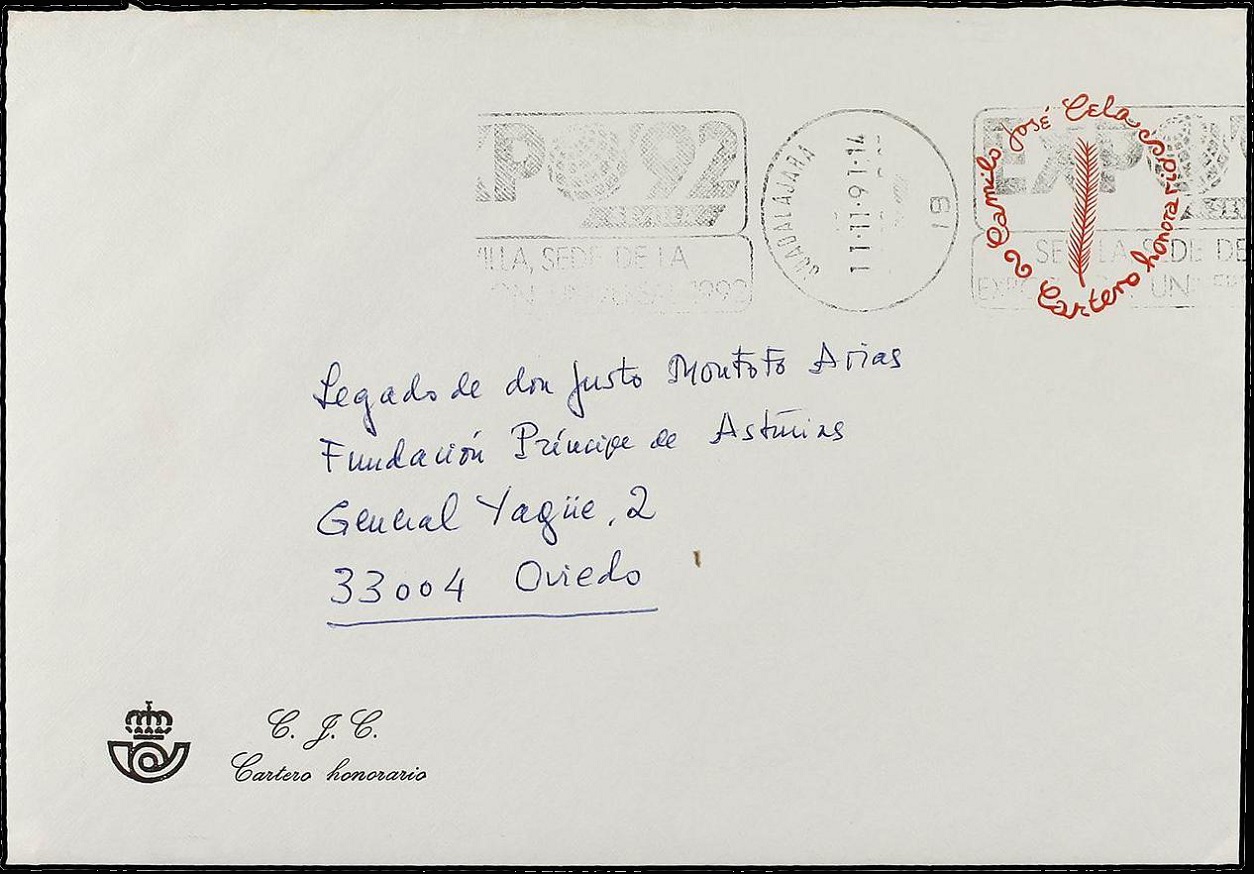 PO'92
SEVILLA
ILLA, SEDE DE LA
1992
GUADALAJARA
11-11-91-14
EXPO'
SEVILLA, SEDE DE
Camilo José Cela
Cartero honorario
Legado de don Justo Montoto Arias
Fundación Príncipe de Asturias
General Yagüe, 2
33004 Oviedo
C. J. C.
Cartero honorario